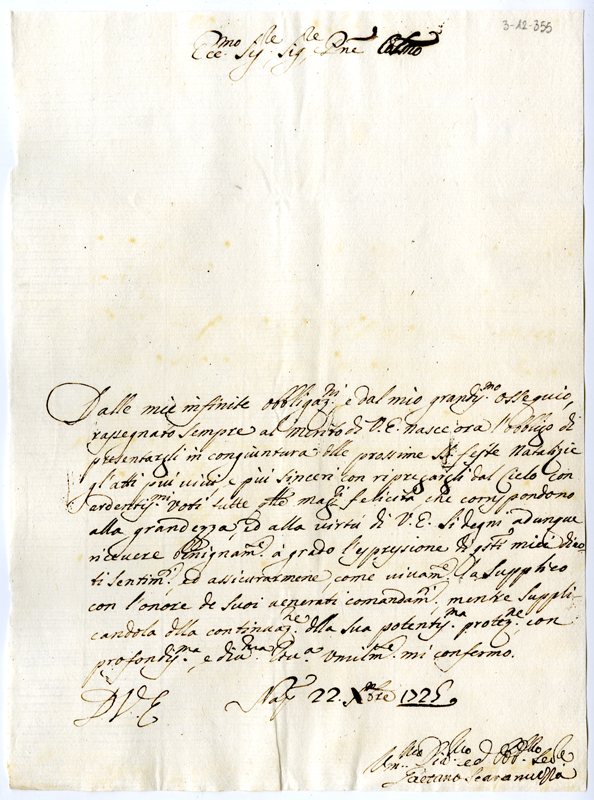 3-12-355
Ecc.mo Sig.re Sig.re P.ne Col.mo
Dalle mie infinite obbligaz.ni e dal mio grandis.mo ossequio,
rassegnato sempre al merito di V.E. nasce ora l'obbligo di
presentargli in congiuntura delle prossime S.te feste Natalizie
gl'atti piu vivi e piu sinceri con ripregargli dal Cielo con
ardentis.mi voti tutte quelle mag.ri felicità che corrispondono
alla grandezza, ed alla virtù di V.E. Si degni adunque
ricevere benignam.e à grado l'espressione di q.sti miei divo-
ti sentim.ti, ed assicurarmene come vivam.e la supplico
con l'onore de suoi venerati comandam.ti mentre suppli-
candola della continuaz.ne della sua potentis.ma protez.ne, con
profondis.ma, e umilm.te mi confermo.
D.V.E. Nap. 22. Xbre 1725
Um.mo ed Obb.mo
Gaetano